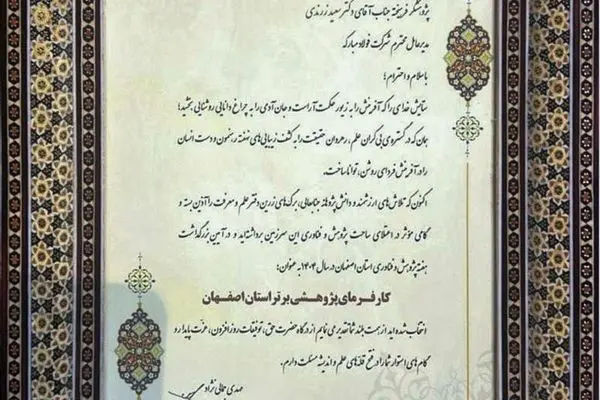 پژوهشگر فرهیخته جناب آقای دکتر سعید زرندی
مدیرعامل محترم شرکت فولاد مبارکه
با سلام و احترام؛
ستایش خدای را که آفرینش را به زیور حکمت آراست و جان آدمی را به چراغ دانایی روشنایی بخشید؛
همان که در گستره‌ی بی‌کران علم، رهروان حقیقت را به کشف زیبایی‌های نهفته رهنمون و دست انسان
را در آفرینش فردای روشن، توانا ساخت.
اکنون که تلاش‌های ارزشمند و دانش پژوهانه جنابعالی، برگ‌های زرین دفتر علم و معرفت را آذین بسته و
گامی مؤثر در اعتلای ساحت پژوهش و فناوری این سرزمین برداشته‌اید و در آیین بزرگداشت
هفته پژوهش و فناوری استان اصفهان در سال ۱۴۰۴ به عنوان:
کارفرمای پژوهشی برتر استان اصفهان
انتخاب شده‌اید از همت بلند شما تقدیر می‌نمایم از درگاه حضرت حق، توفیقات روزافزون، عزت پایدار و
گام‌های استوار شما را در فتح قله‌های علم و اندیشه مسئلت دارم.
مهدی جمالی نژاد